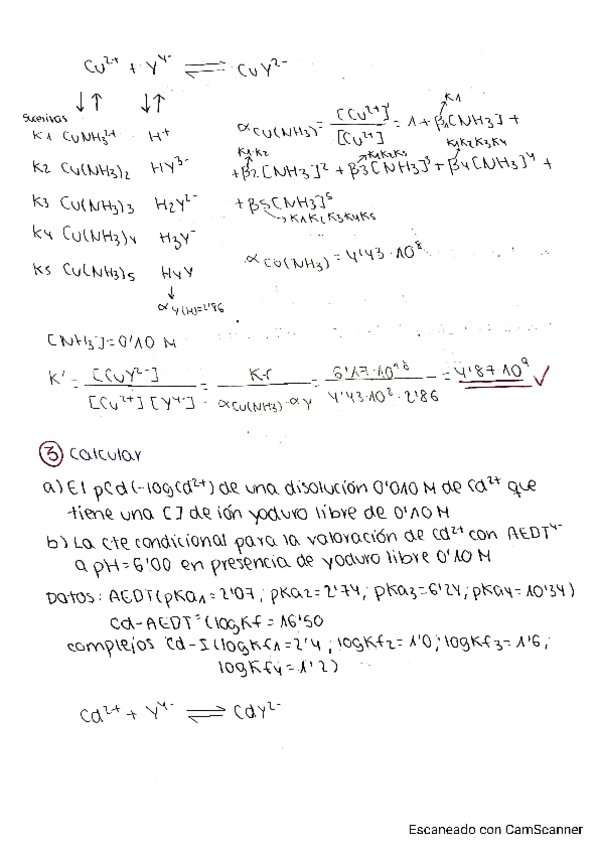 Cu²⁺ + Y⁴⁻ ⇌ CuY²⁻
↓↑ ↓↑
sucesivas
K1 CuNH3²⁺ H⁺
K2 Cu(NH3)2 HY³⁻
K3 Cu(NH3)3 H2Y²⁻
K4 Cu(NH3)4 H3Y⁻
K5 Cu(NH3)5 H4Y
↓
αY(H)=2'86
αCu(NH3) = [Cu²⁺]' / [Cu²⁺] = 1 + β1[NH3] +
K1
K1·K2 K1K2K3 K1K2K3K4
+ β2[NH3]² + β3[NH3]³ + β4[NH3]⁴ +
+ β5[NH3]⁵
→ K1K2K3K4K5
αCu(NH3) = 4'43·10⁸
[NH3] = 0'10 M
K' = [CuY²⁻] / [Cu²⁺][Y⁴⁻] = Kf / αCu(NH3)·αY = 6'17·10¹⁸ / 4'43·10⁸·2'86 = 4'87·10⁹ ✓
③ Calcular
a) El pCd (-log Cd²⁺) de una disolución 0'010 M de Cd²⁺ que
tiene una [] de ión yoduro libre de 0'10 M
b) La cte condicional para la valoración de Cd²⁺ con AEDT⁴⁻
a pH=6'00 en presencia de yoduro libre 0'10 M
Datos: AEDT (pKa1=2'07; pKa2=2'74; pKa3=6'24; pKa4=10'34)
Cd-AEDT⁼ (logKf = 16'50
complejos Cd-I (logKf1=2'4; logKf2=1'0; logKf3=1'6;
logKf4=1'2)
Cd²⁺ + Y⁴⁻ ⇌ CdY²⁻
Escaneado con CamScanner